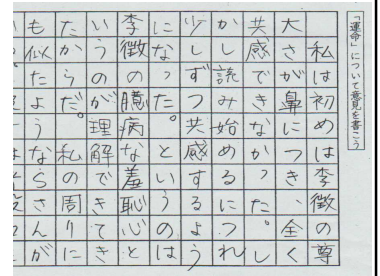 「運命」について意見を書こう
私は初めは李徴の尊
大さが鼻につき、全く
共感できなかった。し
かし読み始めるにつれ
少しずつ共感するよう
になった。というのは
李徴の臆病な羞恥心と
いうのが理解できてき
たからだ。私の周りに
も似たような